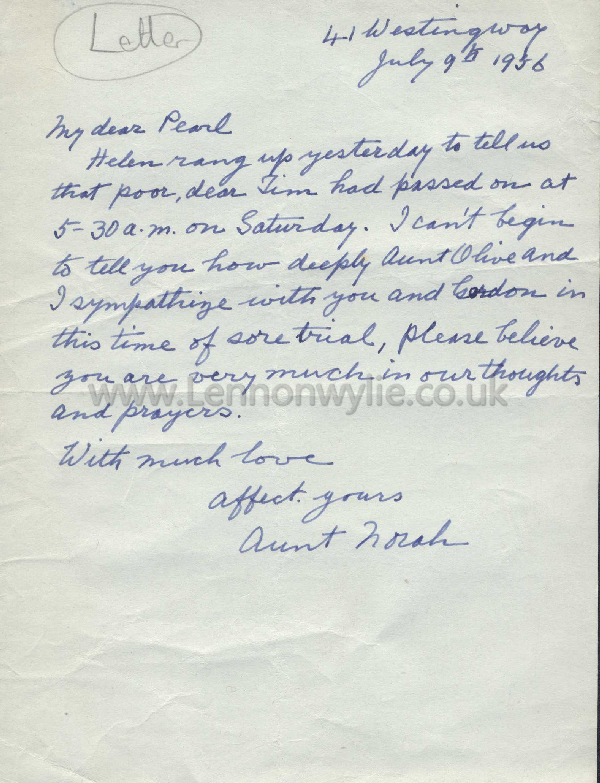 Letter
41 Westingway
July 9th 1956
My dear Pearl
Helen rang up yesterday to tell us
that poor, dear Tim had passed on at
5-30 a.m. on Saturday. I can't begin
to tell you how deeply Aunt Olive and
I sympathize with you and Gordon in
this time of sore trial, please believe
you are very much in our thoughts
www.Lennonwylie.co.uk
and prayers.
With much love
affect. yours
Aunt Norah